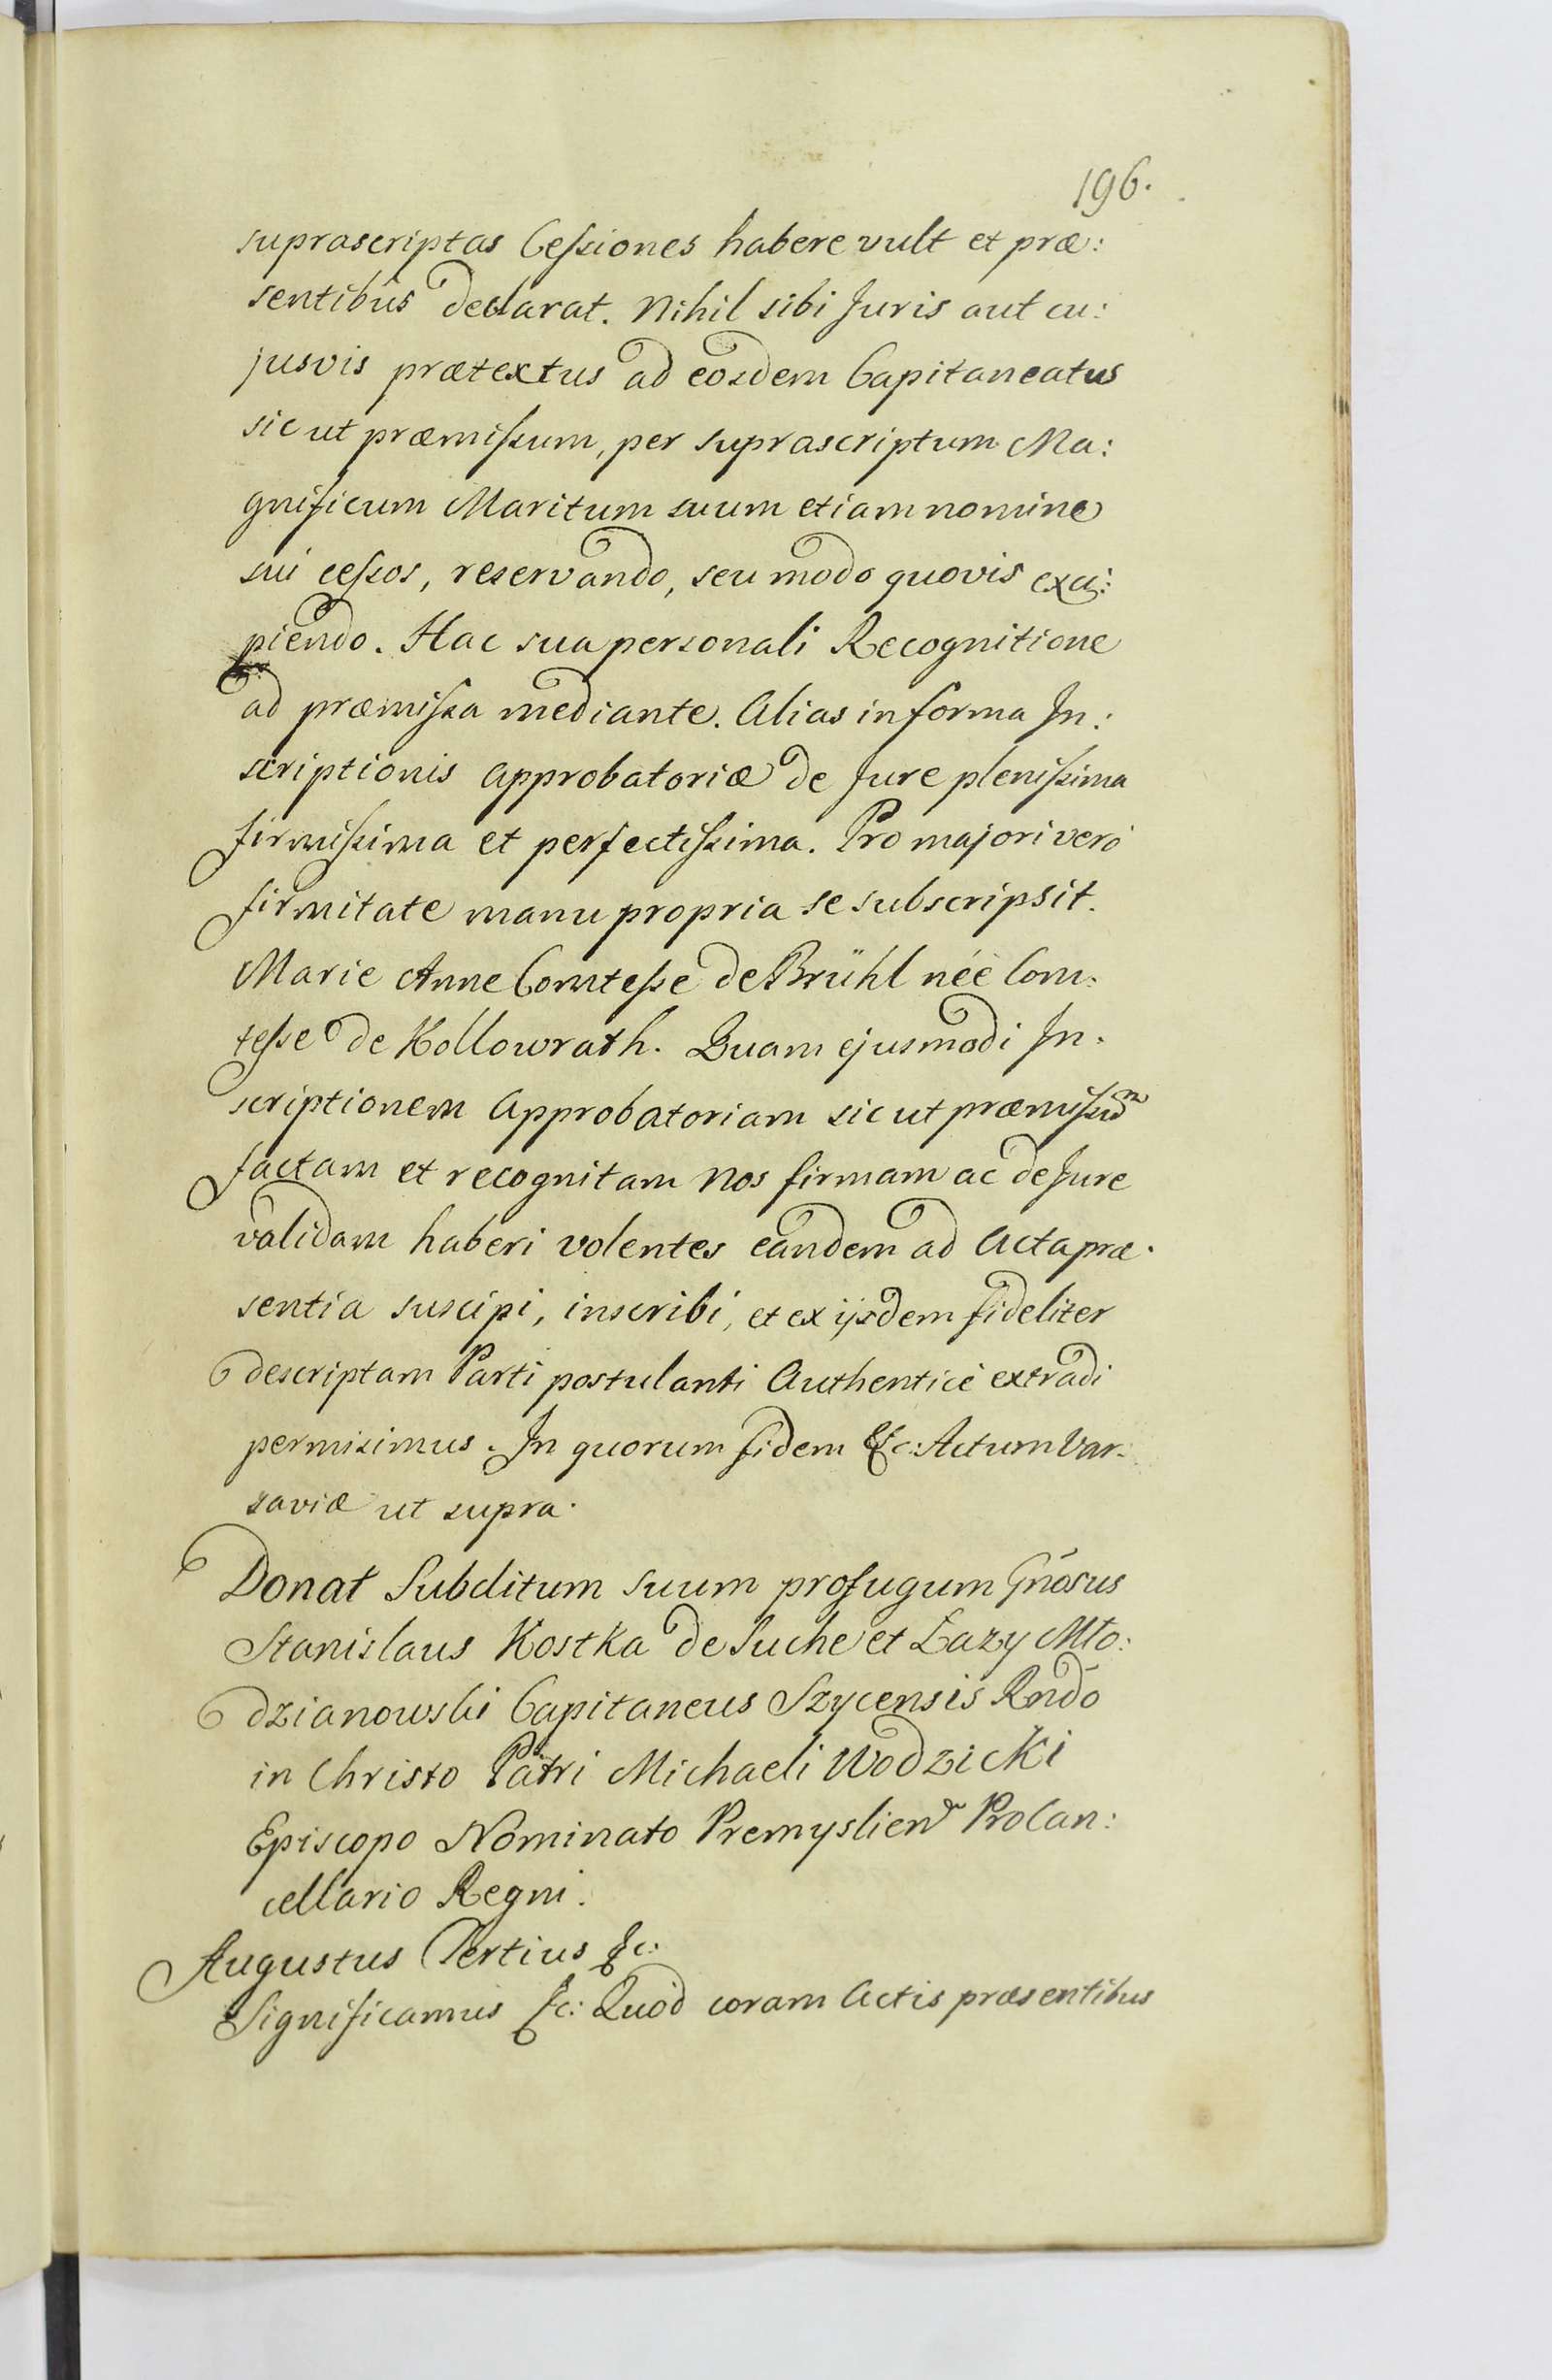 196.
suprascriptas Cessiones habere vult et præ:
sentibûs declarat. Nihil sibi Juris aut cu:
jusvis prætextus ad eosdem Capitaneatus
sic ut præmissum, per suprascriptum Ma:
gnificum Maritum suum etiam nomine
sui cessos, reservando, seu modo quovis exci:
piendo. Hac sua personali Recognitione
ad præmissa mediante. Alias in forma In:
scriptionis Approbatoriæ de Jure plenissima
firmissima et perfectissima. Pro majori verò
firmitate manu propria se subscripsit.
Marie Anne Comtesse de Brühl née Com:
tesse de Kollowrath. Quam ejusmodi In:
scriptionem Approbatoriam sic ut præmissũm
factam et recognitam Nos firmam ac de Jure
validam haberi volentes eandem ad Acta præ:
sentia suscipi, inscribi, et ex ijsdem fideliter
descriptam Parti postulanti Authenticè extradi
permisimus. In quorum fidem &c: Actum Var:
saviæ ut supra.
Donat Subditum suum profugum Gñosus
Stanislaus Kostka de Suche et Łazy Mło:
dzianowski Capitaneus Szycensis Rñdo
in Christo Patri Michaeli Wodzicki
Episcopo Nominato Premyslien̄ ProCan:
cellario Regni.
Augustus Tertius &c:
Significamus &c: Quòd coram Actis præsentibus